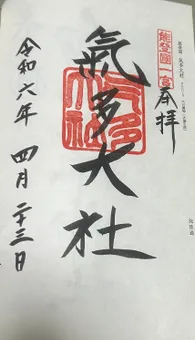 能登國一宮
奉拝
氣多大社
令和六年 四月 二十三日